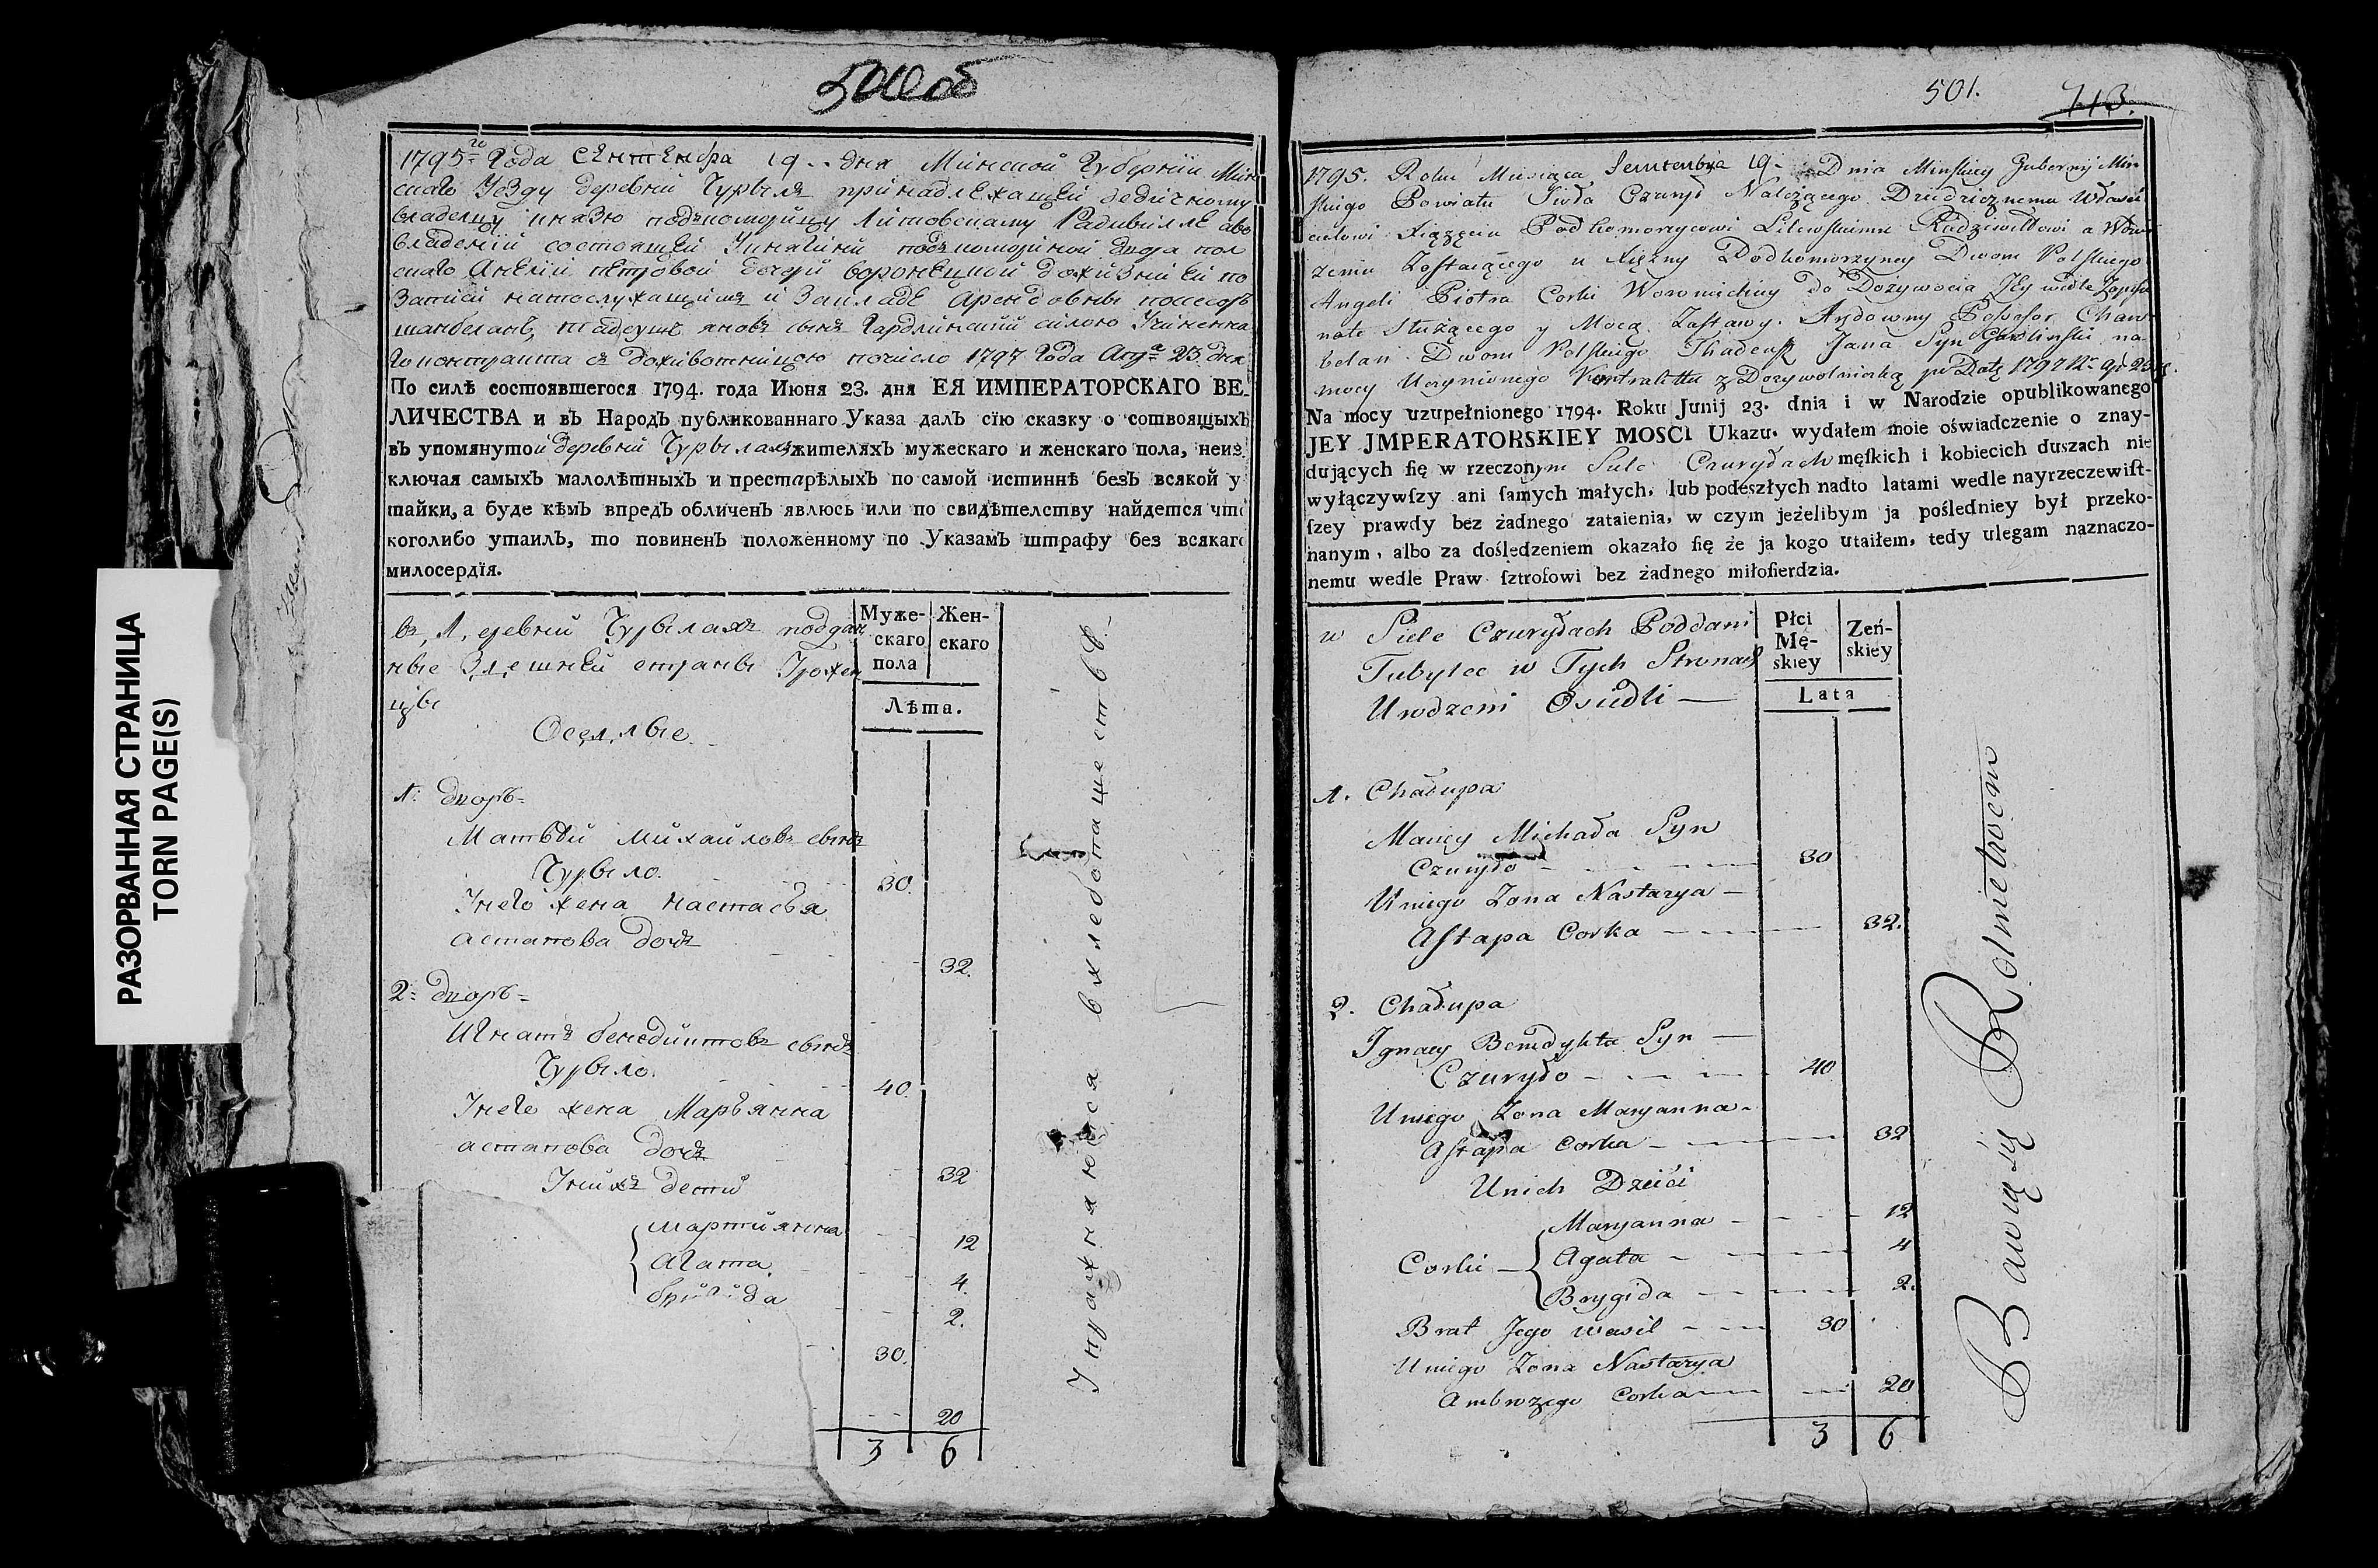 500об
1795го Года Сентебра 19.. дня Минской Губернїи Мин
скаго Уезду деревни Чурылъ принадлежащей дедичному
владелцу князю подкоморйцу Литовскому Радивилле а во
владенїй состоящей У княгйни подкоморйной двора пол
скаго Анелїй петровой дочери воронецкой дожйзнй ей по
Записи натослужащимъ й Закладе Арендовны поссесоръ
шанбеланъ, тадеушъ яновъ сынъ Гардлинский силою Учиненна
Го контракта съ дожйвотнйцою почйсло 1797 Года Апр. 23 дня
По силѣ состоявшегося 1794. года Июня 23. дня ЕЯ ИМПЕРАТОРСКАГО ВЕ-
ЛИЧЕСТВА и въ Народъ публикованнаго Указа далъ сїю сказку о сотвоящыхъ
въ упомянутой деревнй Чурылахъ жителяхъ мужескаго и женскаго пола, неиз
ключая самыхъ малолѣтныхъ и престарѣлыхъ по самой истиннѣ безъ всякой у
тайки, а буде кѣмъ впредъ обличенъ явлюсь или по свидѣтелству найдется что
коголибо утаилъ, то повиненъ положенному по Указамъ штрафу без всякаго
милосердїя.
въ деревнй Чурылахъ поддан
ные Здешней страны Урожен
цы
Оселлые
Муже-
скаго
пола
Жен-
скаго
Лѣта.
1: дворъ=
Матвѣй Михайловъ сынъ
Чурыло. 30.
У него жена настасья
астапова дочь 32.
2= дворъ=
Игнатъ бенедйктовъ сынъ
Чурыло. 40.
У него жена Марьянна
астапова дочь 32
У нйхъ детй
Мартйянна 12
Агата 4.
брйгйда 2.
30.
20
3 6
Упражняются в хлебопашестве.
РАЗОРВАННАЯ СТРАНИЦА
TORN PAGE(S)
501. 713.
1795. Roku Miesiąca Semtenbra 19- Dnia Minskiey Gubernij Min
skiego Powiatu Sioła Czurył Należącego Dziedzicznemu Właści
cielowi Xiążęciu Podkomorzycowi Litewskiemu Radziwiłłowi a Wdzier
żeniu Zostaiącego u Xiężny Podkomorzyney Dworu Polskiego
Angeli Piotra Corki Woronieckiey do Dożywocia Jey wedle Zapisu
nato Służącego y Mocą Zastawy. Arędowny Possesor Cham
belan Dworu Polskiego Thadeusz Jana Syn Gardlinski na
mocy Uczynionego Kontraktu z Dożywotniczką po Datę 1797
Na mocy uzupełnionego 1794. Roku Junij 23. dnia i w Narodzie opublikowanego
JEY JMPERATORSKIEY MOSCI Ukazu. wydałem moie oświadczenie o znay-
dujących ſię w rzeczonym Siele Czuryłach męſkich i kobiecich duszach nie
wyłączywſzy ani ſamych małych, lub podeszłych nadto latami wedle nayrzeczewiſt-
ſzey prawdy bez żadnego zataienia, w czym jeżelibym ja pośledniey był przeko-
nanym, albo za dośledzeniem okazało ſię że ja kogo utaiłem, tedy ulegam naznaczo-
nemu wedle Praw ſztrofowi bez żadnego miłoſierdzia.
w Siele Czuryłach Poddani
Tubylce w Tych Stronach
Urodzeni Osiedli —
Płci
Mę-
skiey
Zeń-
skiey
Lata
1. Chałupa
Maciey Michała Syn
Czuryło 30
U niego Zona Nastazya —
Astapa Corka 32.
2. Chałupa
Jgnacy Benedykta Syn —
Czuryło 40
U niego Zona Maryanna
Astapa Corka 32
U nich Dzieci
Corki
Maryanna 12
Agata 4
Brygida 2.
Brat Jego wasil 30
U niego Zona Nastazya
Ambrożego Corka 20
3 6
Bawią się Rolnictwem